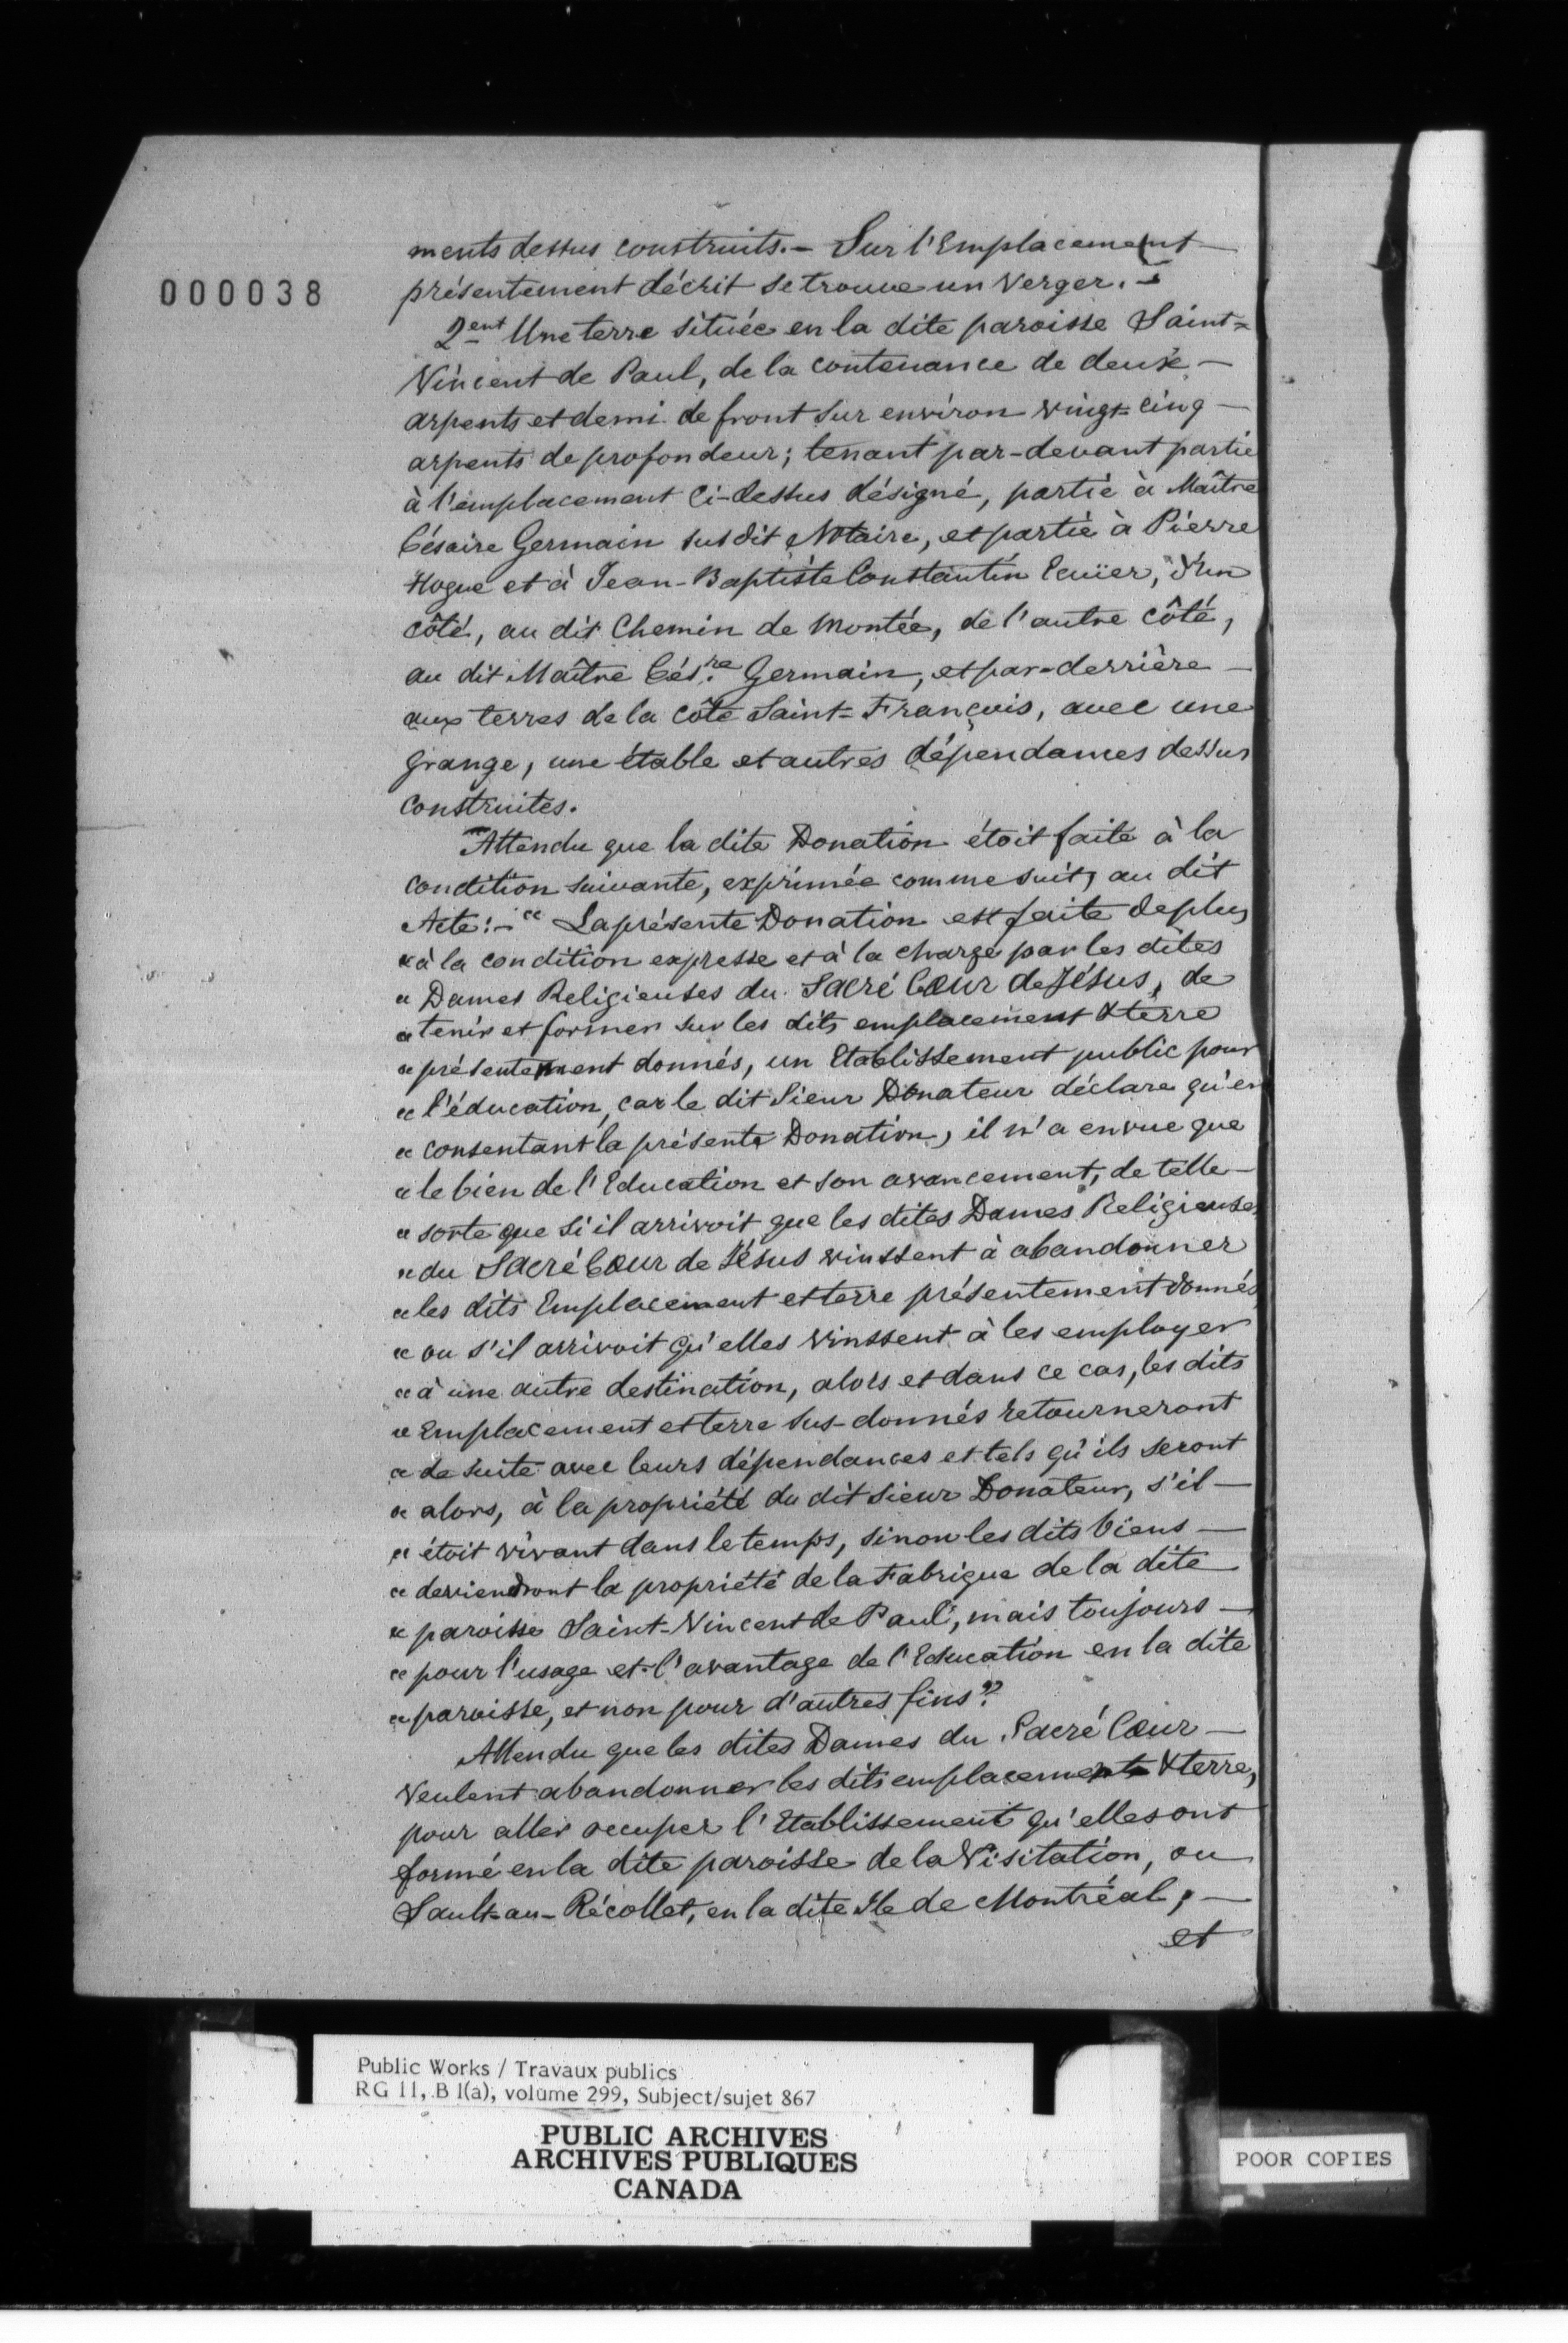 ments dessus construits. — Sur l'Emplacement —
000038
présentement décrit se trouve un Verger. —
2ent Une terre située en la dite paroisse Saint=
Vincent de Paul, de la contenance de deux —
arpents et demi de front sur environ vingt-cinq —
arpents de profondeur; tenant par-devant partie
à l'emplacement ci-dessus désigné, partie à Maître
Césaire Germain susdit Notaire, et partie à Pierre
Hogue et à Jean-Baptiste Constantin Ecuier, d'un
côté, au dit Chemin de Montée, de l'autre côté,
au dit Maître Cés.re Germain, et par-derrière —
aux terres de la côte Saint=François, avec une
grange, une étable et autres dépendances dessus
construites.
Attendu que la dite Donation étoit faite à la
condition suivante, exprimée comme suit, au dit
Acte: — “ La présente Donation est faite de plus
“ à la condition expresse et à la charge par les dites
“ Dames Religieuses du Sacré Cœur de Jésus, de
“ tenir et former sur les dits emplacement & terre
“ présentement donnés, un Etablissement public pour
“ l'éducation, car le dit Sieur Donateur déclare qu'en
“ consentant la présente Donation, il n'a en vue que
“ le bien de l'Education et son avancement, de telle —
“ sorte que si il arrivoit que les dites Dames Religieuses
“ du Sacré Cœur de Jésus vinssent à abandonner
“ les dits Emplacement et terre présentement donnés,
“ ou s'il arrivoit qu'elles vinssent à les employer
“ à une autre destination, alors et dans ce cas, les dits
“ Emplacement et terre sus-donnés retourneront
“ de suite avec leurs dépendances et tels qu'ils seront
“ alors, à la propriété du dit Sieur Donateur, s'il —
“ étoit vivant dans le temps, sinon les dits biens —
“ deviendront la propriété de la Fabrique de la dite
“ paroisse Saint-Vincent de Paul, mais toujours —
“ pour l'usage et l'avantage de l'Education en la dite
“ paroisse, et non pour d'autres fins”.
Attendu que les dites Dames du Sacré Cœur —
Veulent abandonner les dits emplacements & terre,
pour aller occuper l'Etablissement qu'elles ont
formé en la dite paroisse de la Visitation, ou
Sault-au-Récollet, en la dite Ile de Montréal; —
et
Public Works / Travaux publics
RG 11, B 1(a), volume 299, Subject/sujet 867
PUBLIC ARCHIVES
ARCHIVES PUBLIQUES
CANADA
POOR COPIES